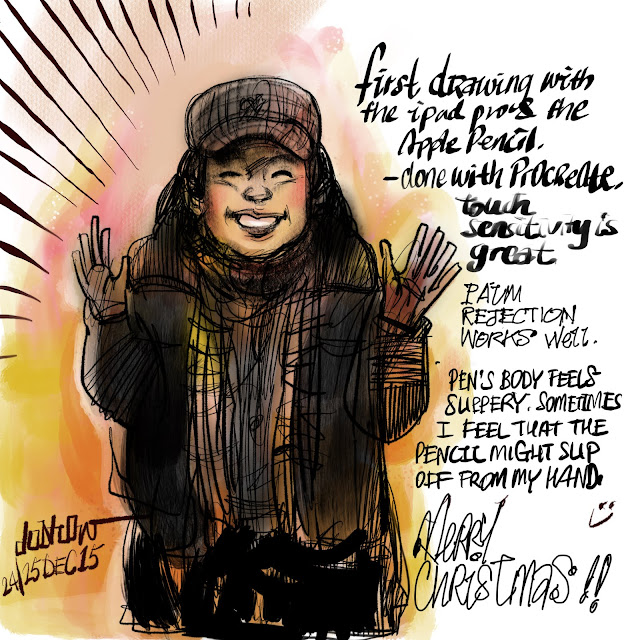 first drawing with
the ipad pro & the
Apple Pencil.
- done with Procreate.
touch
sensitivity is
great
PALM
REJECTION
WORKS Well.
PEN'S BODY FEELS
SLIPPERY. SOMETIMES
I FEEL THAT THE
PENCIL MIGHT SLIP
OFF FROM MY HAND.
Merry
christmas!!
24/25 DEC 15